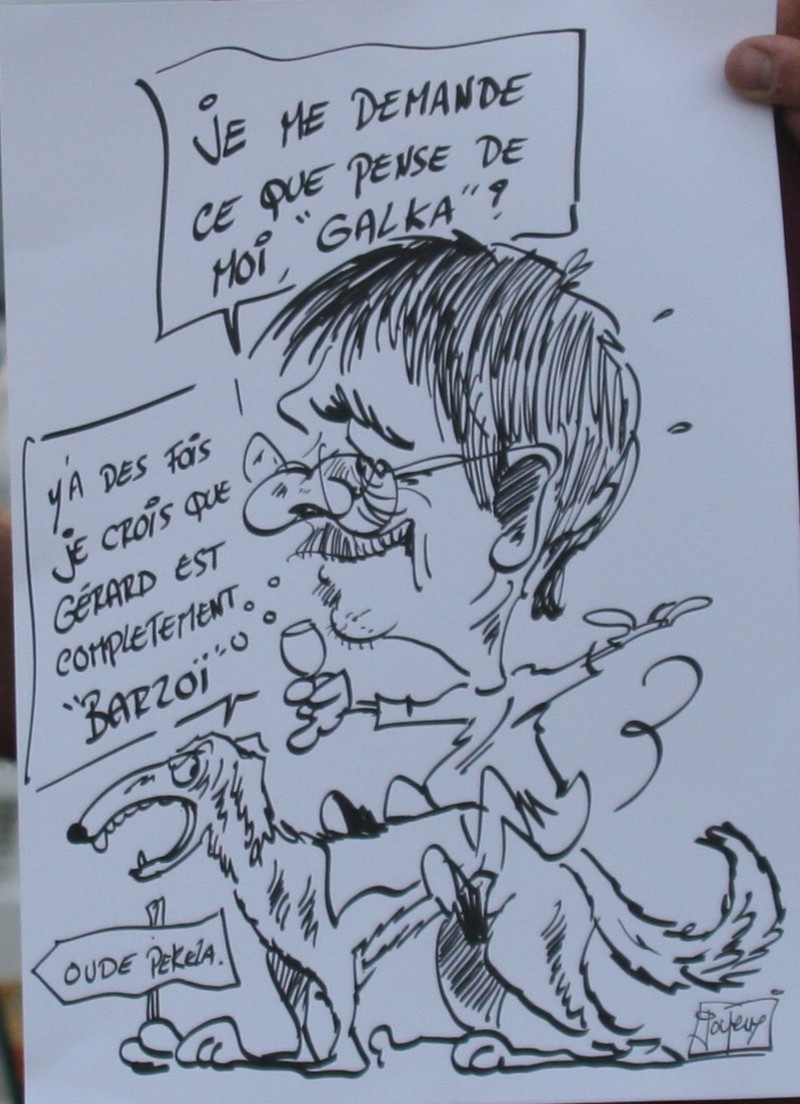 JE ME DEMANDE
CE QUE PENSE DE
MOI, "GALKA"?
Y'A DES FOIS
JE CROIS QUE
GÉRARD EST
COMPLETEMENT
"BARZOÏ"
OUDE PEKELA.